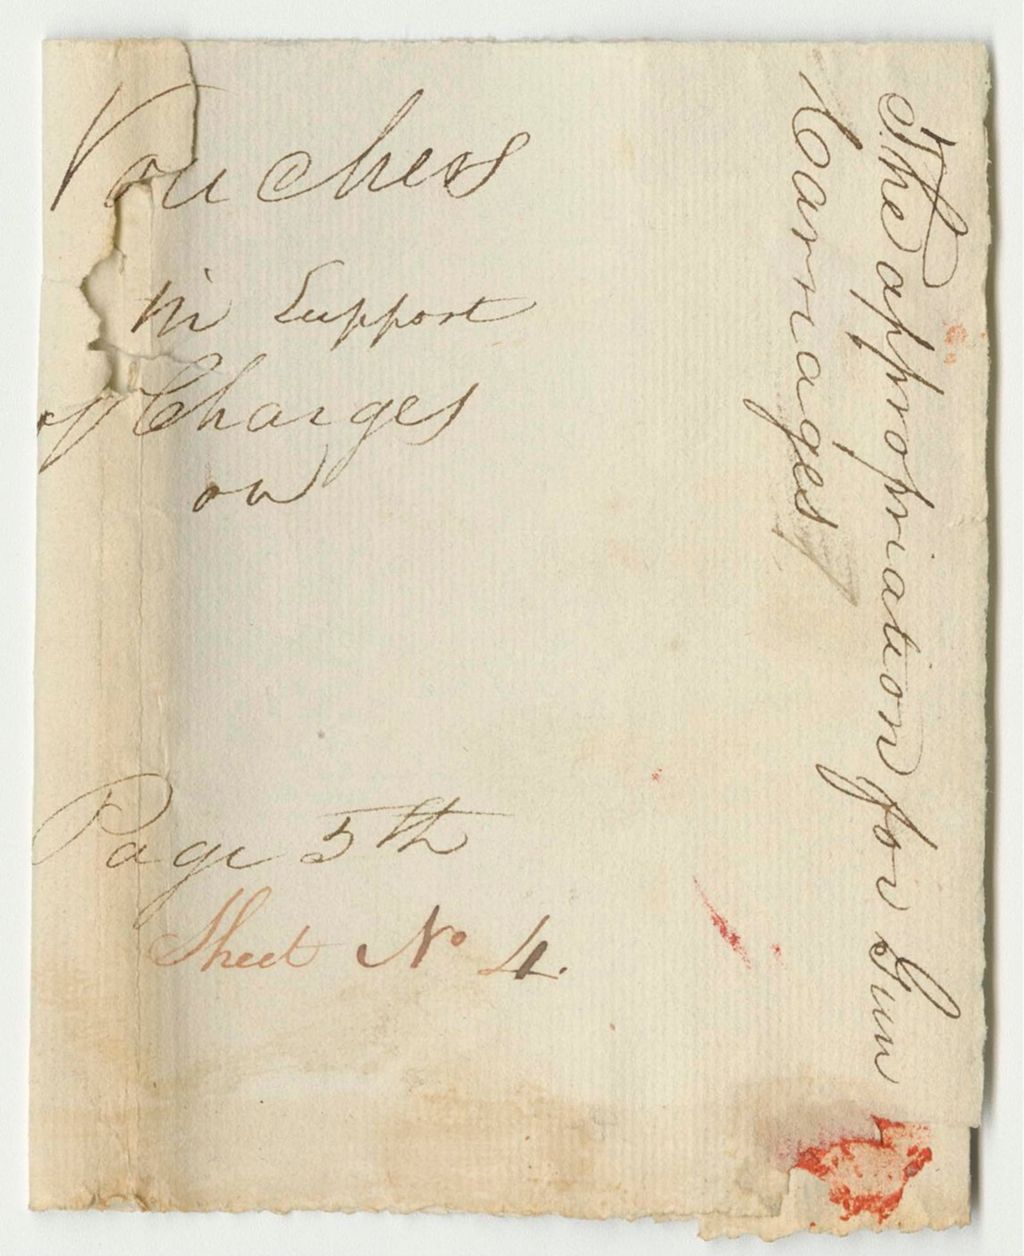 Vouchers
in Support
of Charges
on
Page 5th
Sheet No 4.
The appropriation for Gun
Carriages